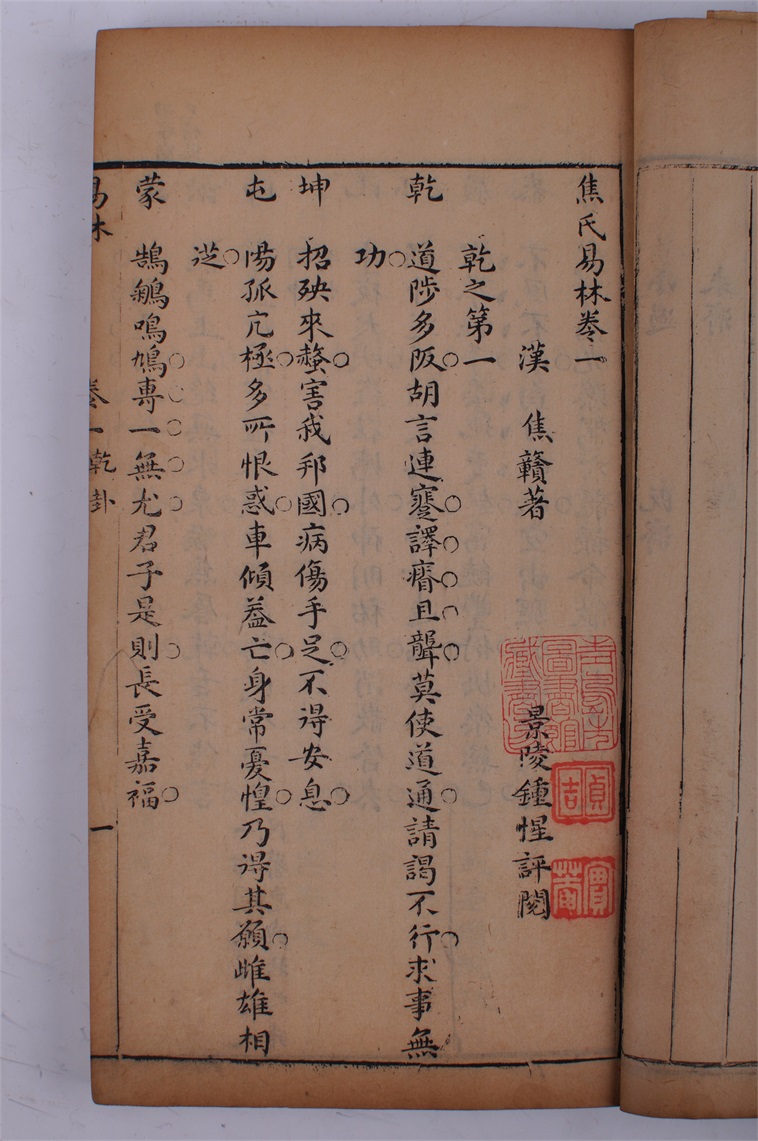 焦氏易林卷一
漢 焦贛著 景陵鍾惺評閱
乾之第一
乾 道陟多阪胡言連蹇譯瘖且聾莫使道通請謁不行求事無
功
坤 招殃來螫害我邦國病傷手足不得安息
屯 陽孤亢極多所恨惑車傾葢亡身常憂惶乃得其願雌雄相
從
蒙 鵠鵴鳴鳩專一無尤君子是則長受嘉福
易林 卷一乾卦 一
貞吉